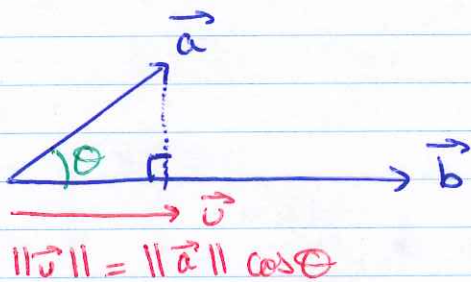 a⃗
θ
b⃗
v⃗
||v⃗|| = ||a⃗|| cosθ